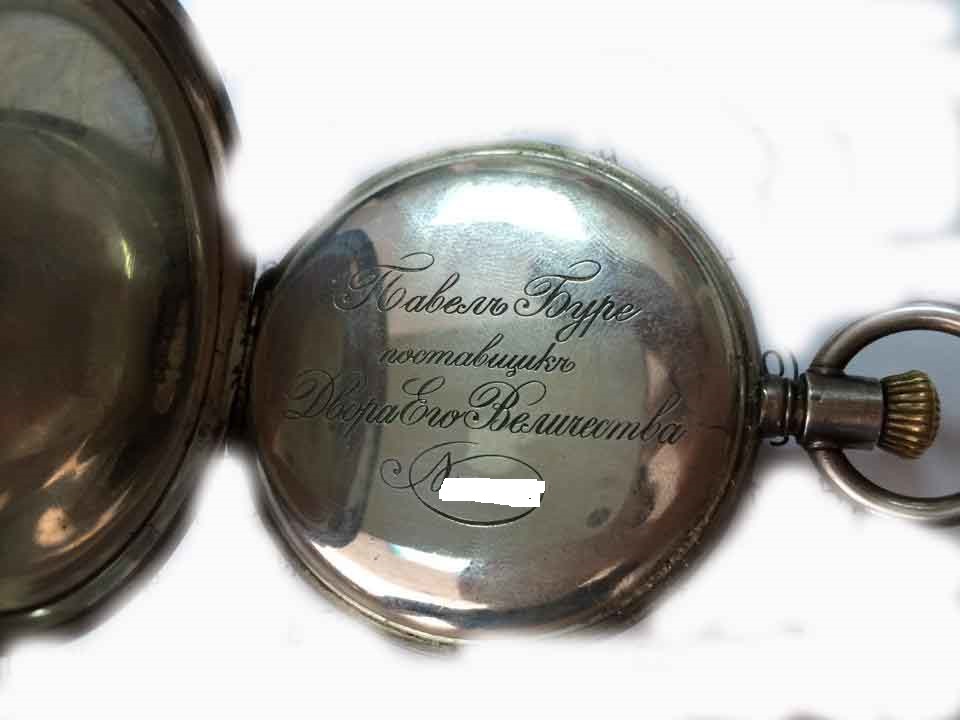 Павелъ Буре
поставщикъ
Двора Его Величества
№